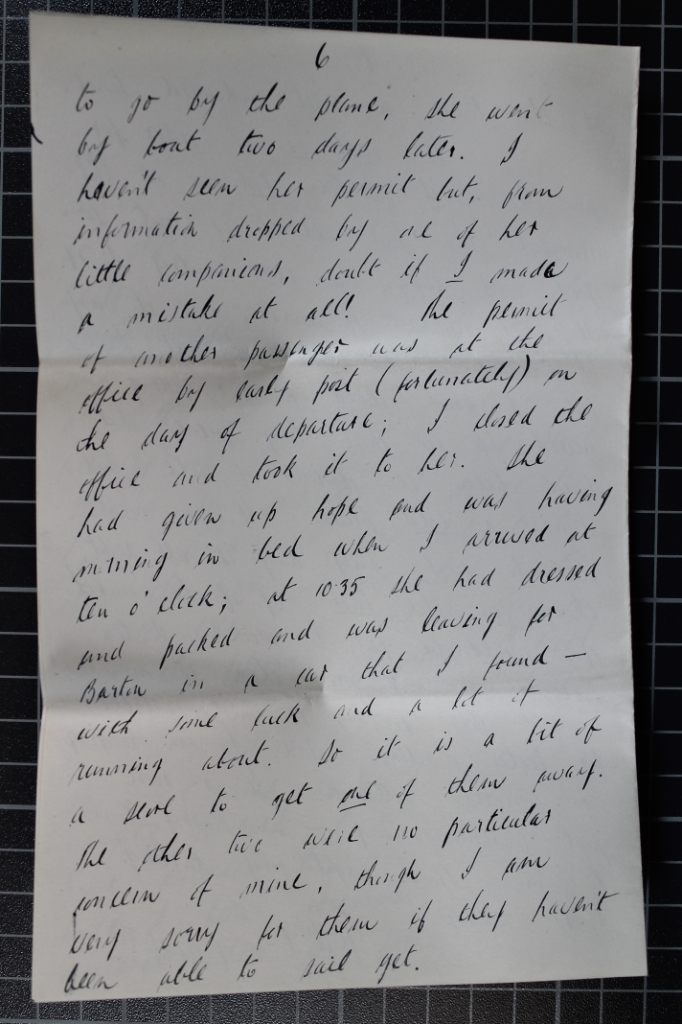 6
to go by the plane, she went
by boat two days later. I
haven't seen her permit but, from
information dropped by one of her
little companions, doubt if I made
a mistake at all! The permit
of another passenger was at the
office by early post (fortunately) on
the day of departure; I closed the
office and took it to her. She
had given up hope and was having
morning in bed when I arrived at
ten o'clock; at 10.35 she had dressed
and packed and was leaving for
Barton in a car that I found —
with some luck and a lot of
running about. So it is a bit of
a score to get one of them away.
The other two were no particular
concern of mine, though I am
very sorry for them if they haven't
been able to sail yet.